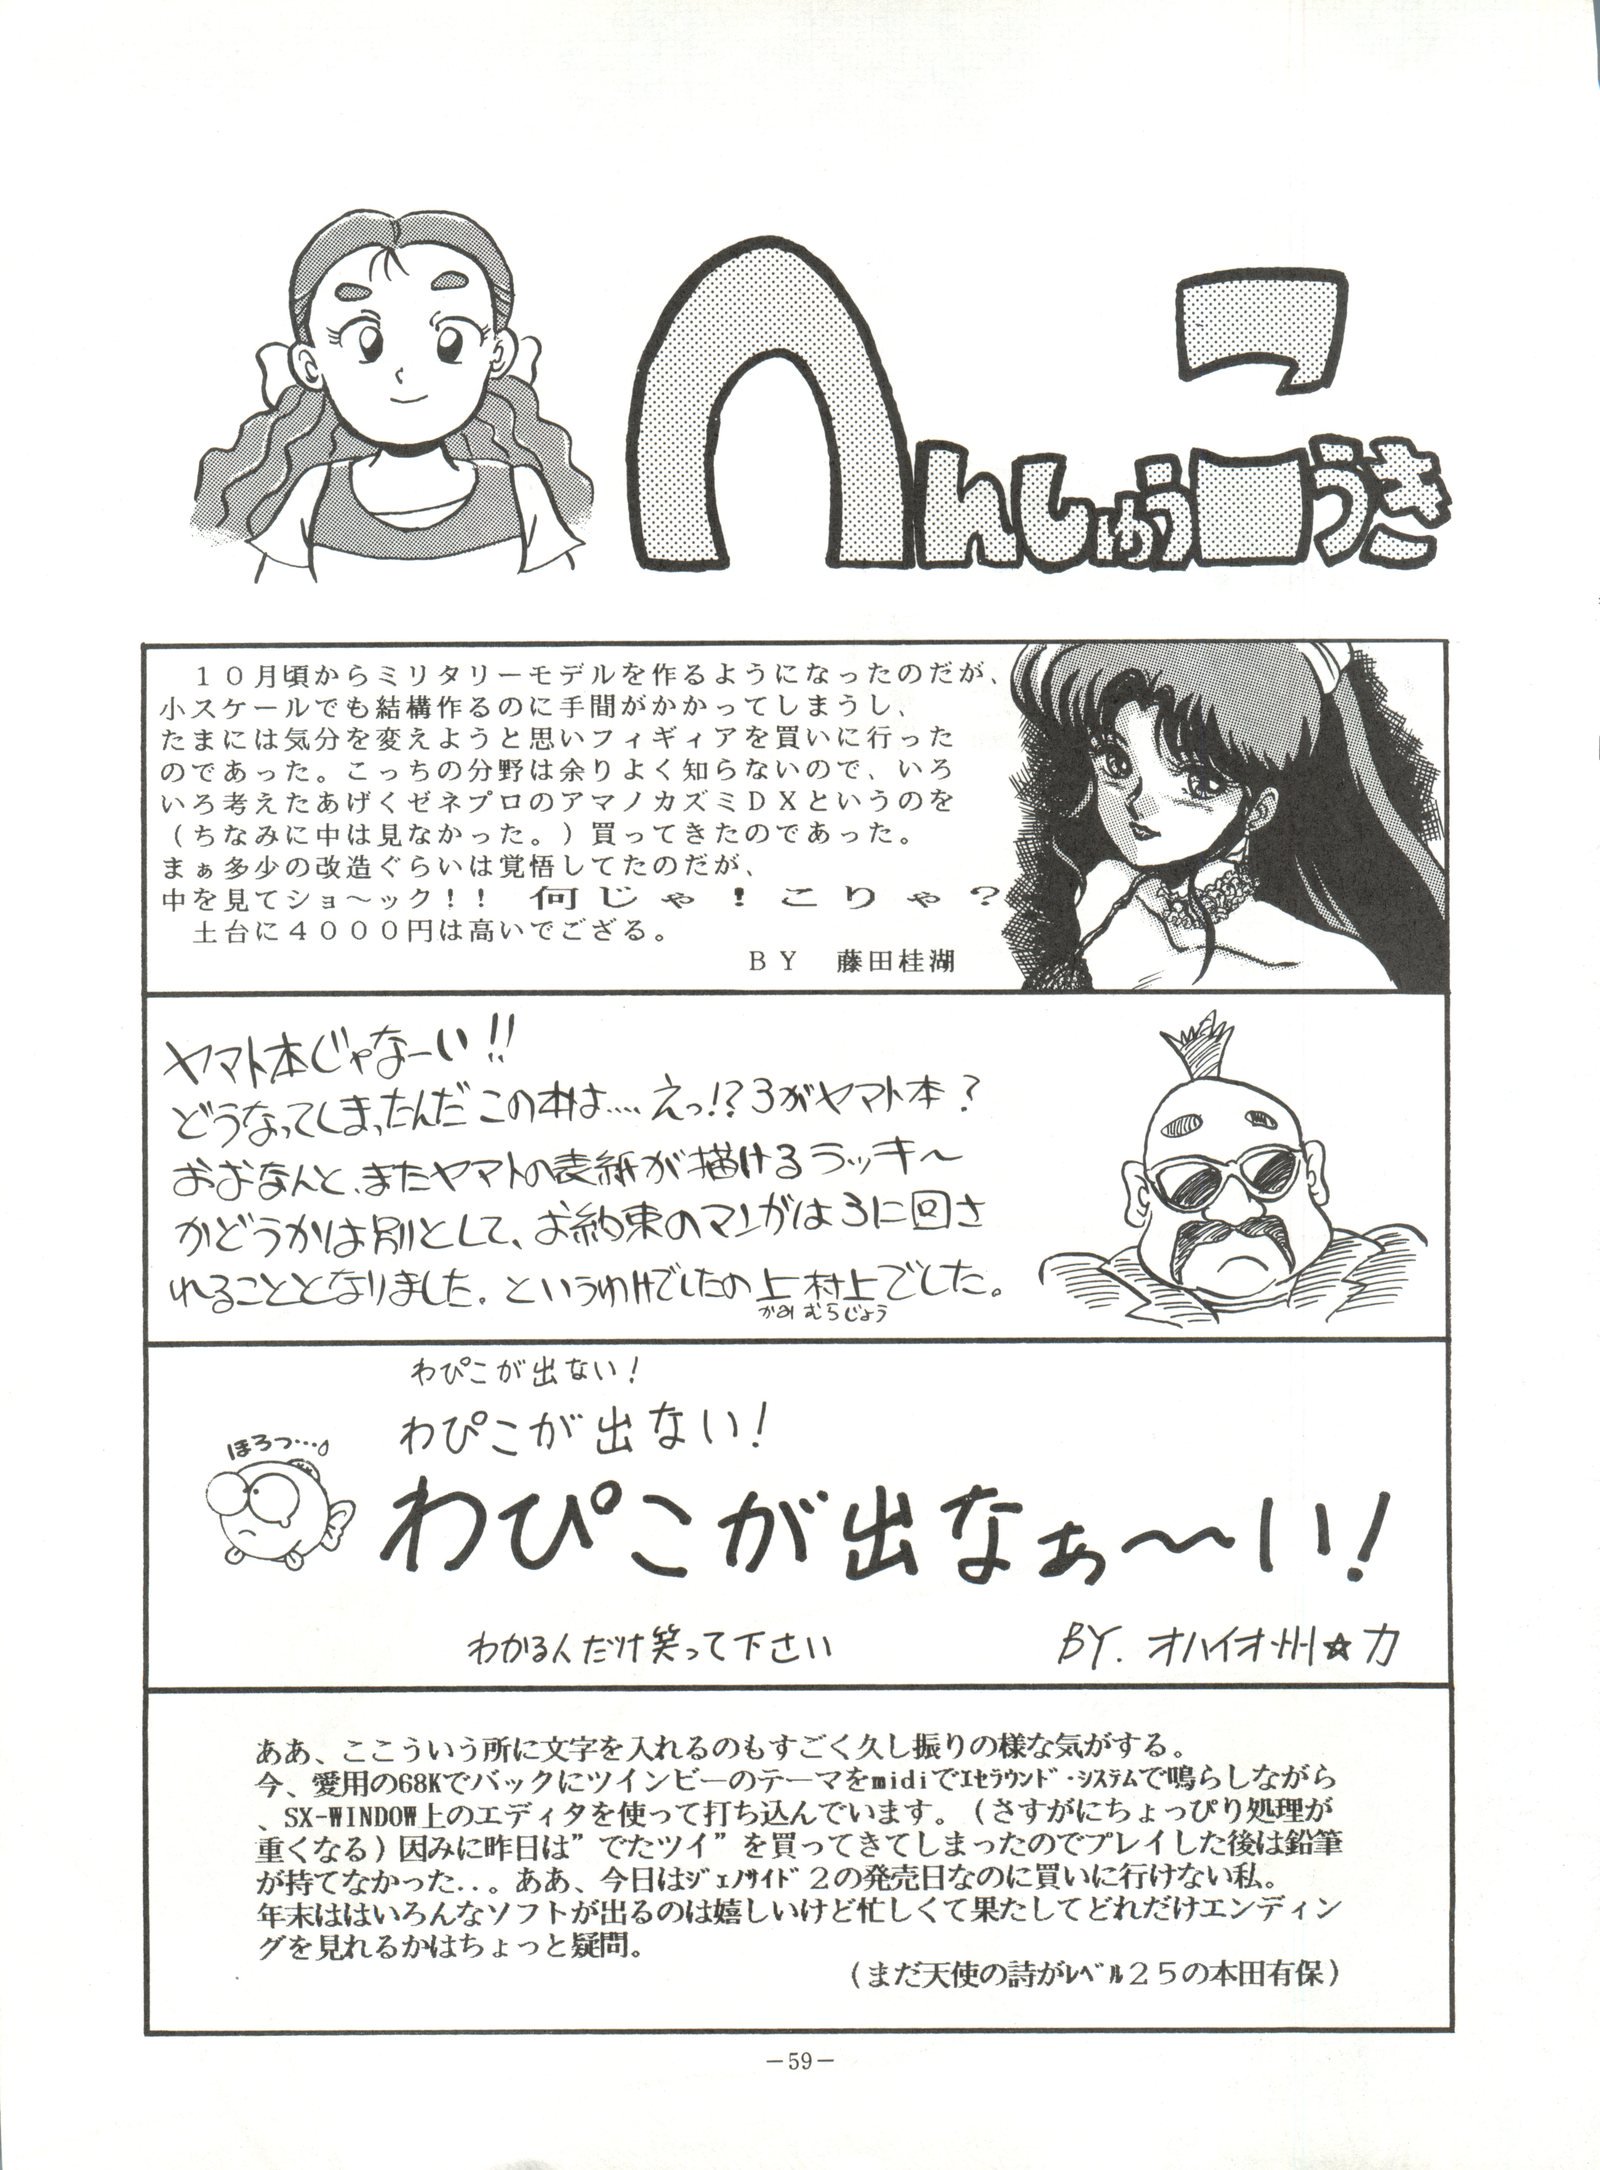 へんしゅうこうき
１０月頃からミリタリーモデルを作るようになったのだが、
小スケールでも結構作るのに手間がかかってしまうし、
たまには気分を変えようと思いフィギィアを買いに行った
のであった。こっちの分野は余りよく知らないので、いろ
いろ考えたあげくゼネプロのアマノカズミＤＸというのを
（ちなみに中は見なかった。）買ってきたのであった。
まぁ多少の改造ぐらいは覚悟してたのだが、
中を見てショ～ック！！　何じゃ！こりゃ？
土台に４０００円は高いでござる。
ＢＹ　藤田桂湖
ヤマト本じゃなーい!!
どうなってしまったんだこの本は.... えっ!?3がヤマト本?
おおなんと、またヤマトの表紙が描けるラッキ～
かどうかは別として、お約束のマンガは3に回さ
れることとなりました。というわけでしたの上村上でした。
かみむらじょう
わぴこが出ない!
わぴこが出ない!
ほろっ…
わぴこが出なぁ～～い!
わかる人だけ笑って下さい
BY. オハイオ州☆力
ああ、ここういう所に文字を入れるのもすごく久し振りの様な気がする。
今、愛用の68Kでバックにツインビーのテーマをmidiでｴｾﾗｳﾝﾄﾞ･ｼｽﾃﾑで鳴らしながら
、SX-WINDOW上のエディタを使って打ち込んでいます。（さすがにちょっぴり処理が
重くなる）因みに昨日は”でたツイ”を買ってきてしまったのでプレイした後は鉛筆
が持てなかった..。ああ、今日はｼﾞｪﾉｻｲﾄﾞ２の発売日なのに買いに行けない私。
年末ははいろんなソフトが出るのは嬉しいけど忙しくて果たしてどれだけエンディン
グを見れるかはちょっと疑問。
（まだ天使の詩がﾚﾍﾞﾙ２５の本田有保）
－59－